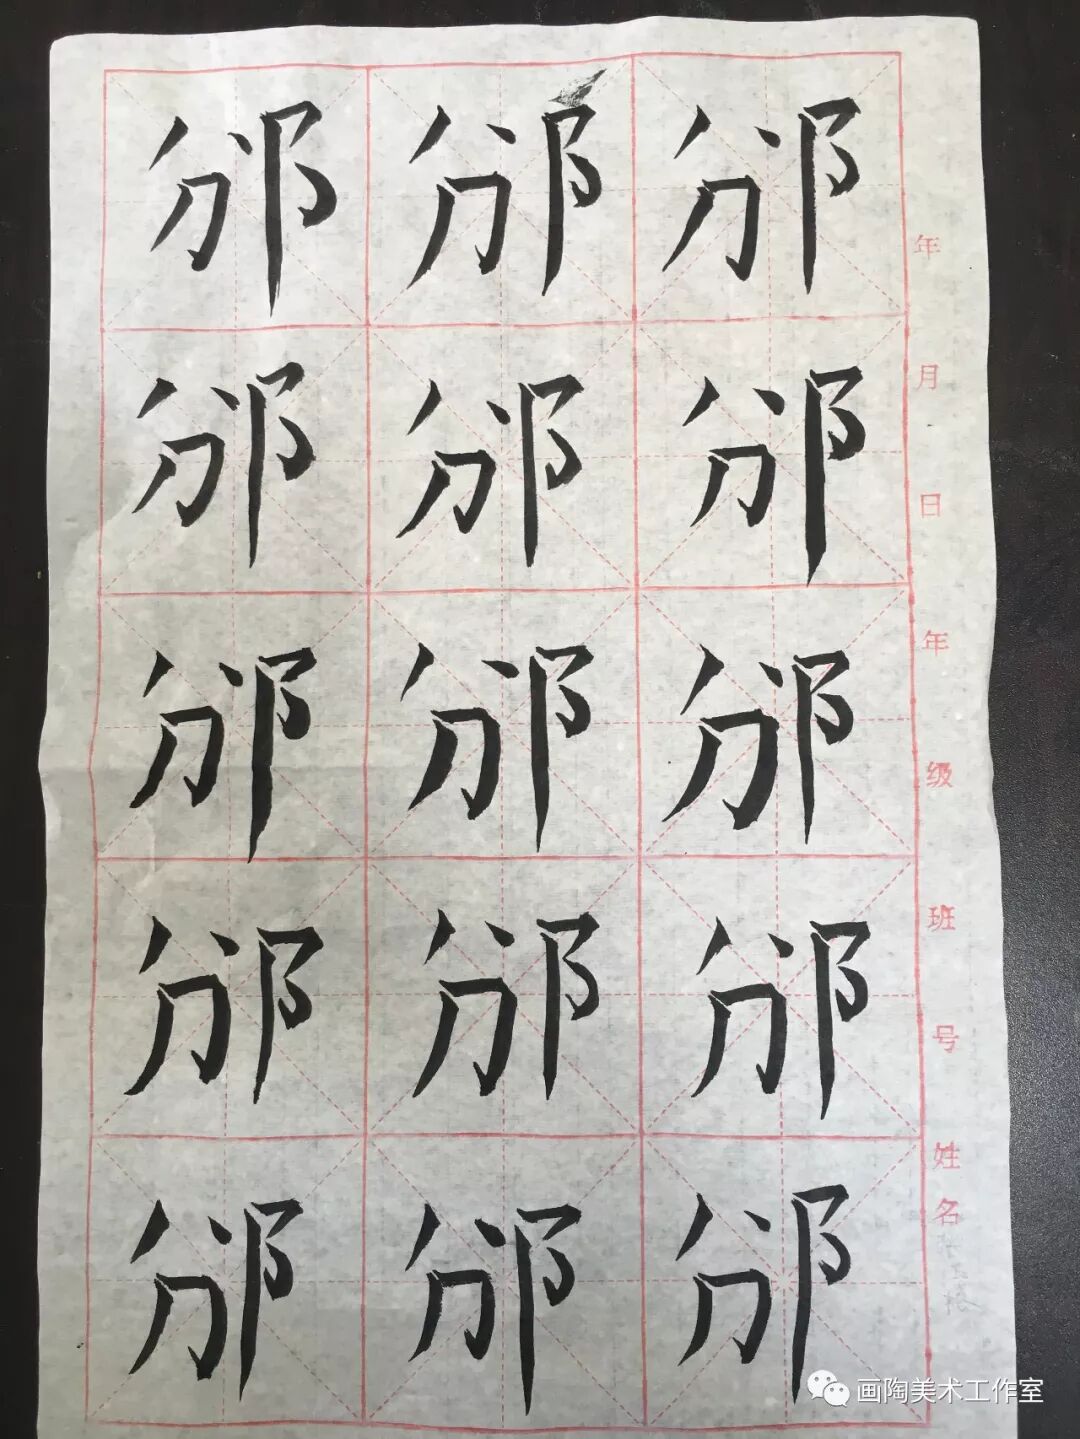 邠 邠 邠
邠 邠 邠
邠 邠 邠
邠 邠 邠
邠 邠 邠
年 月 日 年 级 班 号 姓名
画陶美术工作室